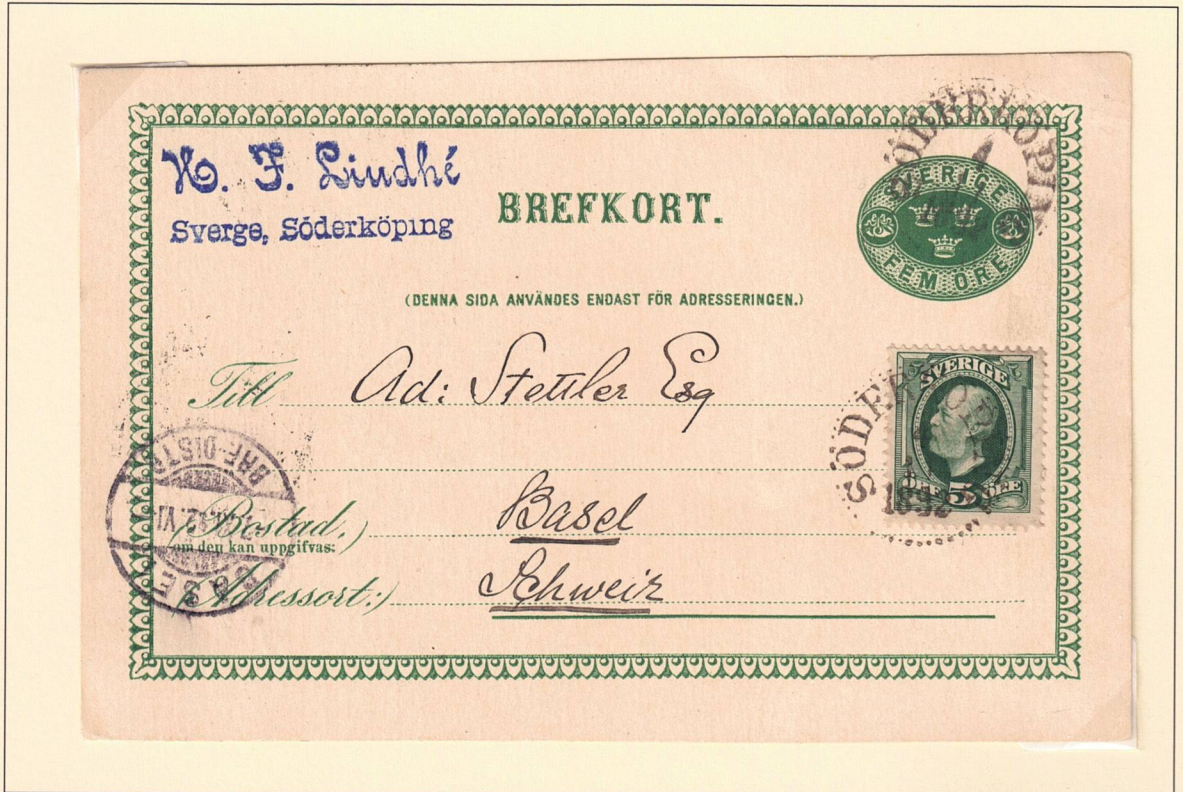 N. F. Lindhé
Sverge, Söderköping
BREFKORT.
SÖDERKÖPING
SVERIGE
FEM ÖRE
(DENNA SIDA ANVÄNDES ENDAST FÖR ADRESSERINGEN.)
Till Ad: Stettler Esq
SVERIGE
ÖRE 5 ÖRE
1892
(Bostad,)
om den kan uppgifvas:
Basel
(Adressort:) Schweiz
BRF-DISTR
BASEL